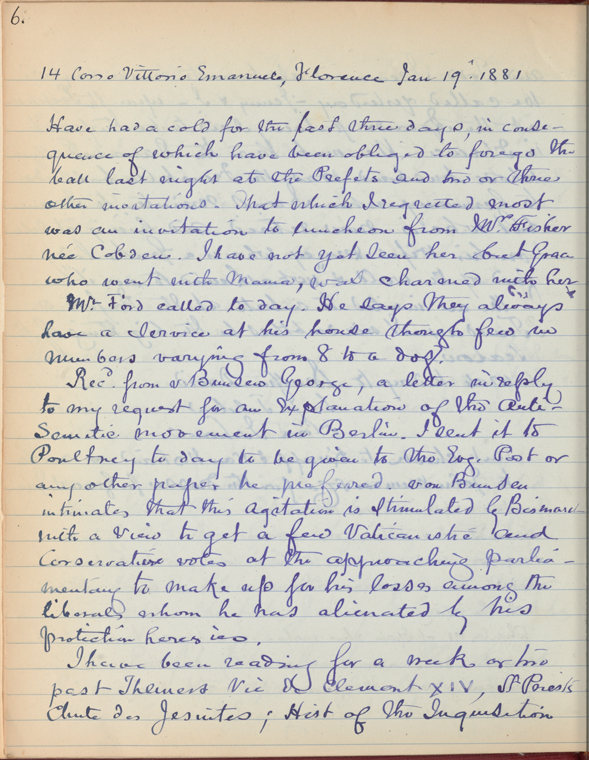 6.
14 Corso Vittorio Emanuele, Florence Jan 19. 1881
Have had a cold for the last three days, in conse-
quence of which have been obliged to forego the
ball last night at the Prefets and two or three
other invitations. That which I regretted most
was an invitation to luncheon from Mrs Fisher
née Cobden. I have not yet seen her but Grace
who went with Mama, was charmed with her
Mr Ford called to day. He says they always
have a service at his house though few in
numbers varying from 8 to a doz.
Recd. from v Bunden George, a letter in reply
to my request for an Explanation of the Anti-
Semitic movement in Berlin. I sent it to
Poultney to day to be given to the Evg. Post or
any other paper he preferred. von Bunden
intimates that this agitation is stimulated by Bismarck
with a view to get a few Vaticanistic and
Conservative votes at the approaching parlia-
mentary to make up for his losses among the
liberals whom he has alienated by his
protection heresies.
I have been reading for a week or two
past Theiners Vie de Clement XIV, St Priests
Chute des Jesuites; Hist of the Inquisition